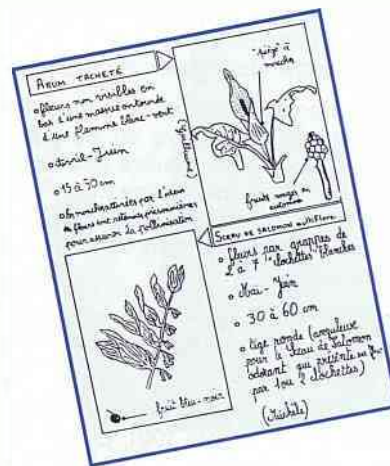 ARUM TACHETÉ
fleurs non visibles en
bas d'une massue entourée
d'une flamme blanc-vert
Avril-Juin
15 à 50 cm
les mouches attirées par l'odeur
de fleurs sont retenues prisonnières
pour assurer la pollinisation
"piège" à
mouche
fruits rouges en
automne
SCEAU DE SALOMON MULTIFLORE
fleurs par grappes de
2 à 7 "clochettes" blanches
Mai-Juin
30 à 60 cm
tige ronde (anguleuse
pour le Sceau de Salomon
odorant qui présente ses
par 1 ou 2 clochettes)
(Michèle)
fruit bleu-noir